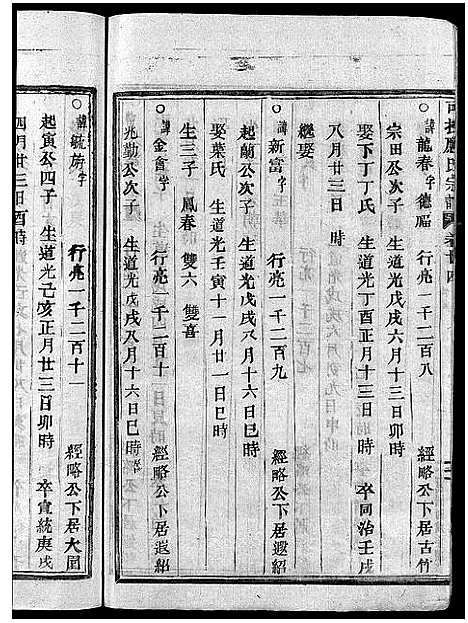 ○諱龍春字德 行亮一千二百八 經略公下居古竹
宗田公次子 生道光戊戌六月十三日辰時
娶下丁丁氏 生道光丁酉正月十三日 時 卒同治壬戌
八月廿三日 時
繼娶
○諱新富字 行亮一千二百九 經略公下居遐紹
起蘭公次子 生道光戊戌八月十六日巳時
娶葉氏 生道光壬寅十一月廿一日巳時
生三子 鳳春 雙六 雙喜
○諱金會字 行亮一千二百十 經略公下居遐紹
兆勤公次子 生道光戊戌八月十六日巳時
○諱毓 字 行亮一千二百十一 經略公下居大園
起寅公四子 生道光己亥正月廿三日卯時 卒宣統庚戌
四月廿三日酉時